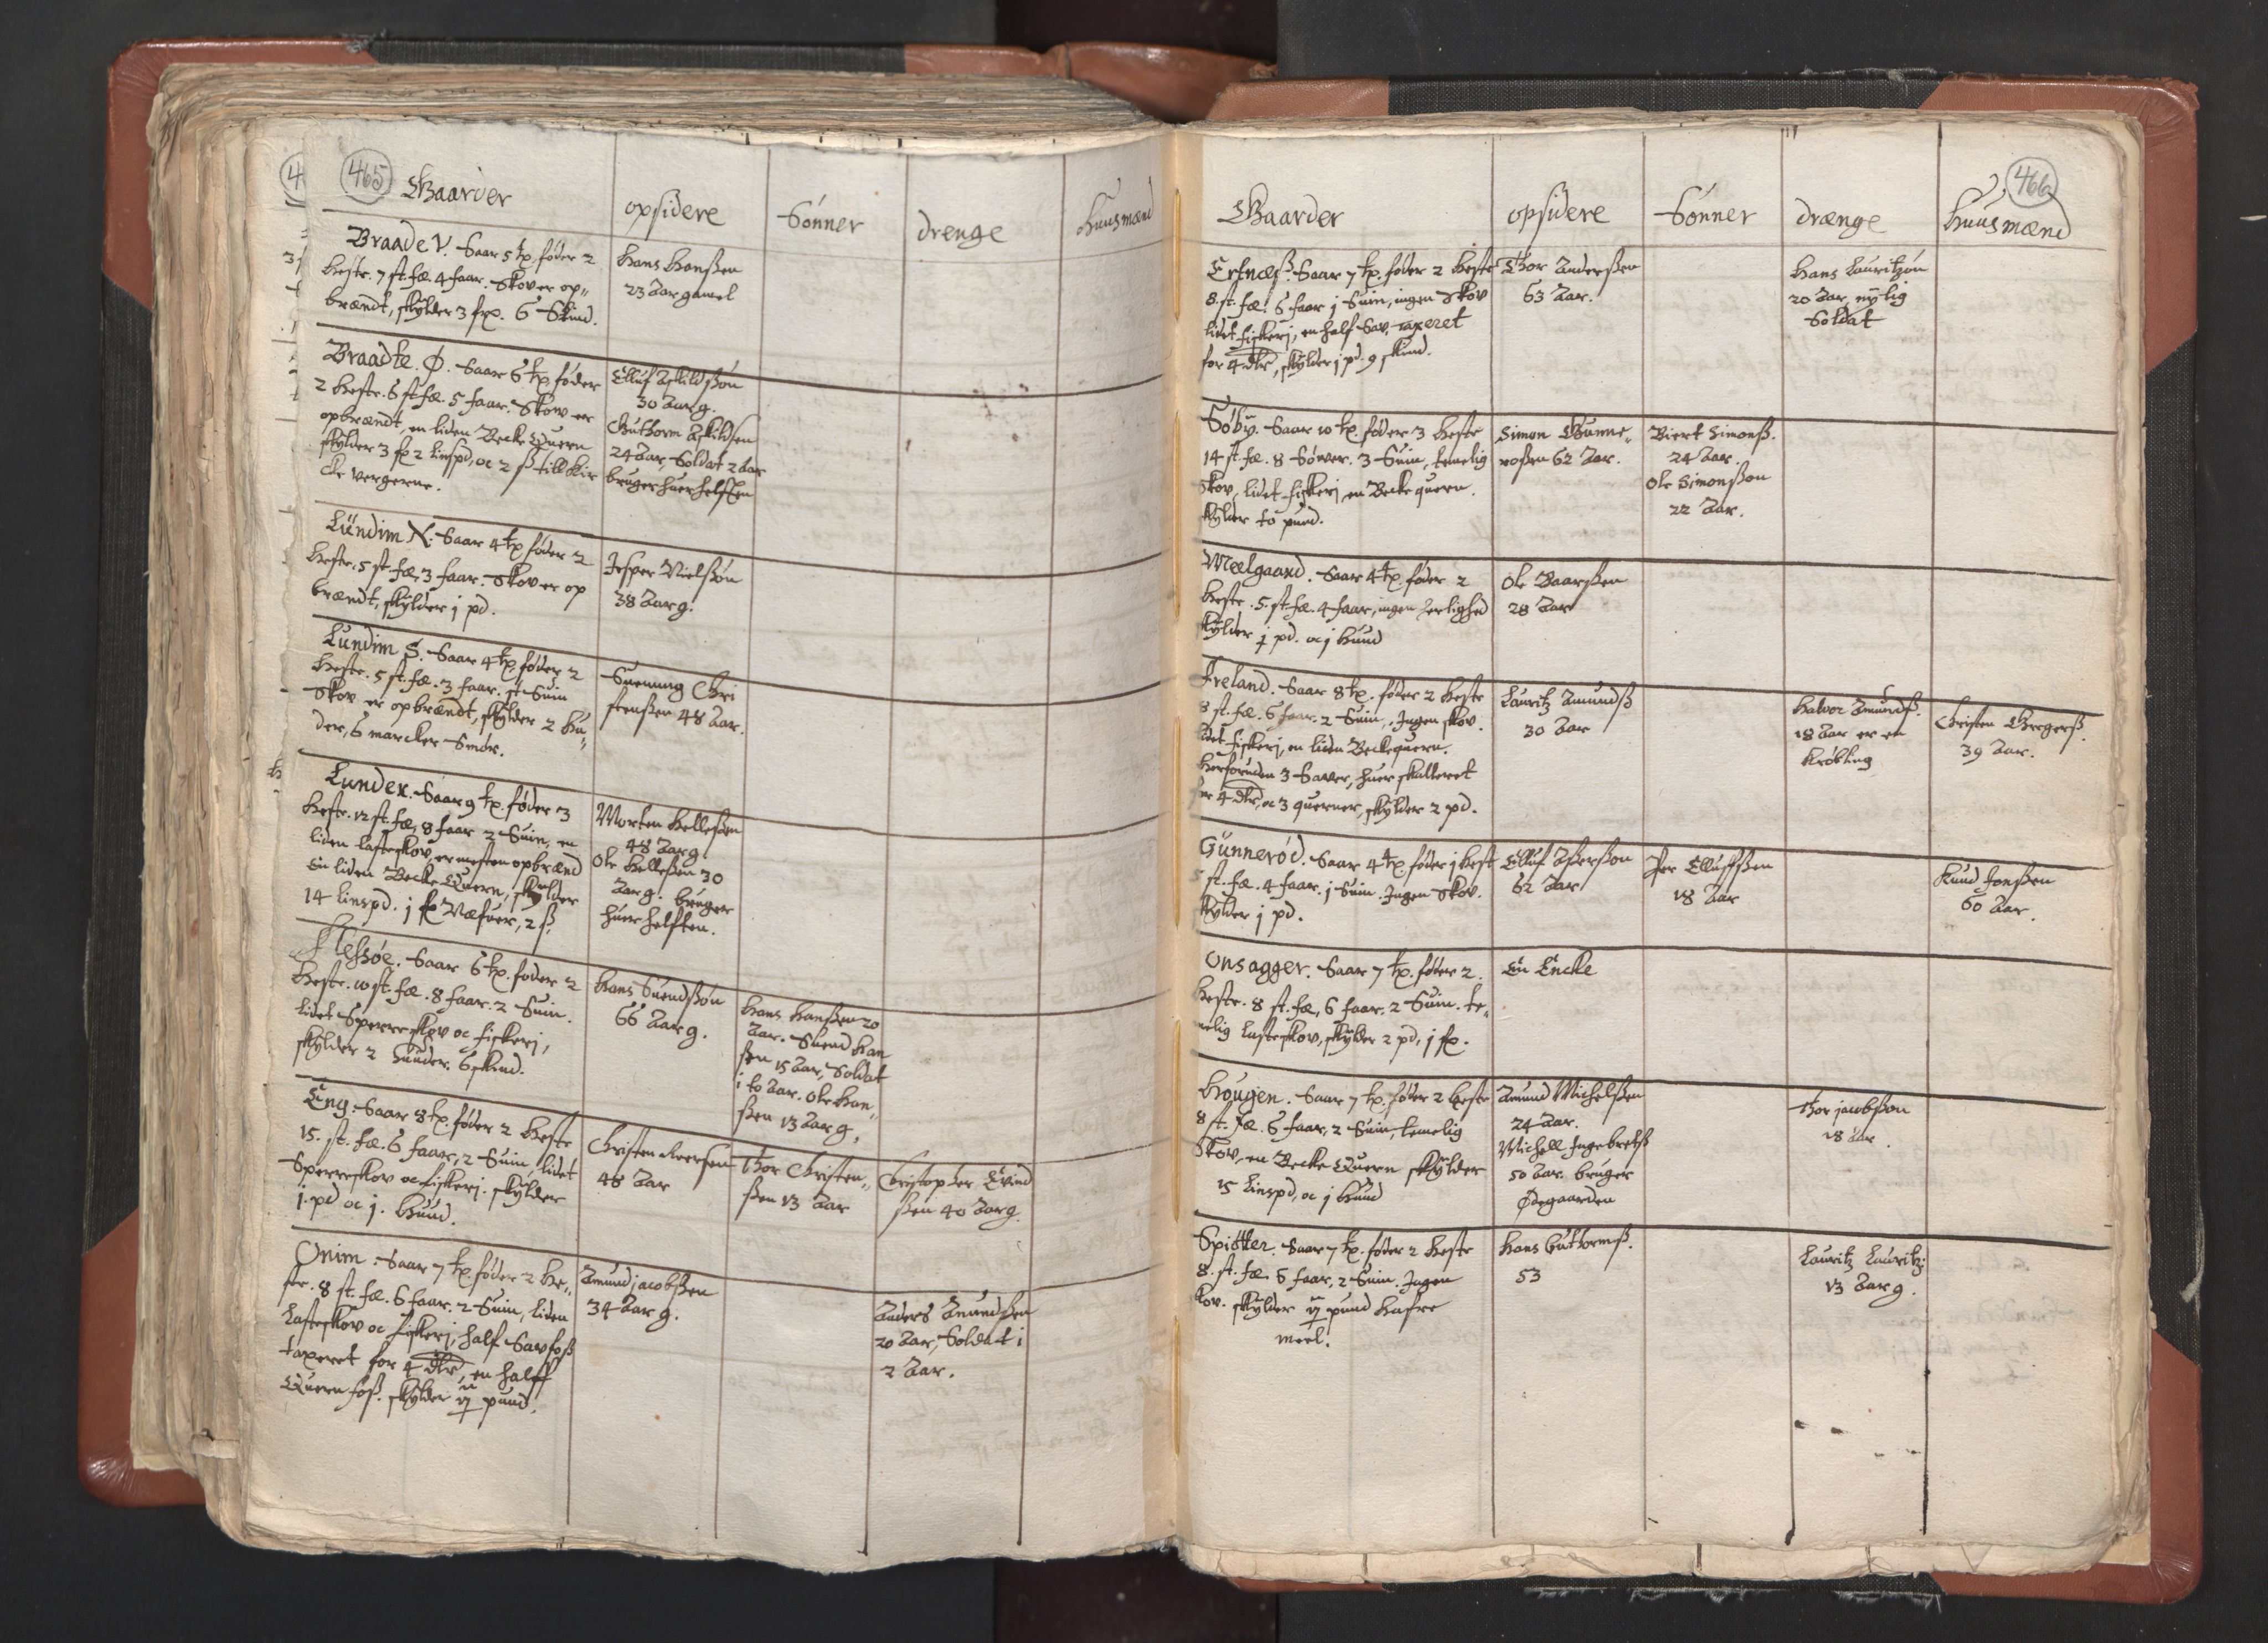 465
Gaarder
opsidere
Sønner
drenge
Huusmænd
Braade V. Saar 5 tp. føder 2
heste. 7 st. fæ. 4 faar. Skov er op„
brændt, skylder 3 fxx. 6 Skind.
Hans Hanßen
23 Aar gamel
Braadte. Ø. Saar 6 tp. føder
2 heste. 6 st fæ. 5 faar. Skow er
opbrændt, en liden Becke Quern
skylder 3 fx 2 linspd, oc 2 ß till kir
cke vergerne.
Elluf Askildßøn
30 Aar g.
Guthorm Askildsen
24 Aar, Soldat 2 Aar
bruger huer helften
Lundim N. Saar 4 tp. føder 2
heste. 5 st. fæ, 3 faar. Skov er op
brændt, skylder j pd.
Jesper Nielßøn
38 Aar g.
Lundim S. Saar 4 tp. føder 2
heste. 5 st. fæ. 3 faar. st Suin
Skov er opbrændt, skylder 2 hu„
der, 6 marcker Smör.
Suenning Chri
stenßen 48 Aar.
Lunder. Saar 9 tp. føder 3
heste. 12 st. fæ, 8 faar 2 Suin, en
liden lasteskov, er mesten opbrænd
En liden Becke Quern, skylder
14 linspd. j fx Næfuer, 2 ß.
Morten Helleßen
48 Aar g
Ole Helleßen 30
Aar g. bruger
huer helften.
Flesøe. Saar 6 tp. føder 2
heste. 10 st. fæ. 8 faar. 2 Suin.
lidet Sperreskov oc fiskeri,
skylder 2 huder. 6 skind.
Hans Suendßøn
66 Aar g.
Hans Hanßen 20
Aar. Suend Han
ßen 15 Aar, Soldat
i to Aar. Ole Han„
ßen 13 Aar g.
Eng. Saar 8 tp. føder 2 heste
15. st. fæ. 6 faar, 2 Suin, lidet
Sperreskov oc fiskeri. skylder
j. pd oc j. huud.
Christen Iversen
48 Aar
Thor Christen„
ßen 13 Aar
Christopher Evind
ßen 40 Aar g.
Onim. Saar 7 tp. føder 2 he„
ste. 8 st. fæ. 6 faar. 2 Suin, liden
Lasteskov oc fiskeri, half Saufoß
taxeret for 4 dlr, en halff
Quern foß. skylder ij pund.
Amund jacobßen
34 Aar g.
Anders Amundßen
20 Aar, Soldat i
2 Aar.
466
Gaarder
opsidere
Sønner
drænge
huusmænd
Ertnæß. Saar 7 tp. føder 2 heste
8. st. fæ. 6 faar j Suin, ingen Skov
lidet fiskeri, en half Sav. taxeret
for 4 dlr, skylder j pd. 9 skind.
Thor Anderßen
63 Aar.
Hans Lauritzøn
20 Aar, nylig
Soldat
Søby. Saar 10 tp. føder 3 heste
14 st. fæ. 8 Søuer. 3 Suin, temelig
Skov, lidet fiskeri, en Becke quern.
skylder to pund.
Simon Gunne„
roßen 62 Aar.
Biert Simonß.
24 Aar.
Ole Simonßon
22 Aar.
Meelgaard. Saar 4 tp. føder 2
heste. 5. st. fæ. 4 faar, ingen herlighed
skylder j pd. oc j huud
Ole Baarßen
28 Aar
Ireland. Saar 8 tp. føder 2 heste
8 st. fæ. 6 faar. 2 Suin, Ingen skov.
lidet fiskeri, en liden Beckequern.
Herforuden 3 Sauer, huer skatteret
for 4 dlr, oc 3 querner, skylder 2 pd.
Lauritz Amundß
30 Aar
Halvor Amundß.
18 Aar er en
Krøbling
Christen Gregerß.
39 Aar.
Gunnerød. Saar 4 tp. føder j hest
5 st. fæ. 4 faar. j Suin. Ingen Skov.
skylder j pd.
Elluf Aßerßon
62 Aar
Per Elluffßen
18 Aar
Knud Jonßen
60 Aar.
Onsagger. Saar 7 tp. føder 2
heste. 8 st. fæ, 6 faar, 2 Suin. te„
melig lasteskov, skylder 2 pd, j fx.
En Encke
Hougen. Saar 7 tp. føder 2 heste
8 st. fæ. 6 faar, 2 Suin, temelig
Skov, en Becke Quern skylder
15 Linspd, oc j huud
Amund Michelßen
24 Aar.
Michell Ingebretß
50 Aar. bruger
Ødegaarden
Thor jacobßon
18 Aar.
Spiøtter. Saar 7 tp. føder 2 heste
8. st. fæ. 6 faar, 2 Suin. Ingen
skov. skylder ij pund hafre
meel.
Hans Guthormß.
53
Lauritz Lauritz:
13 Aar g.